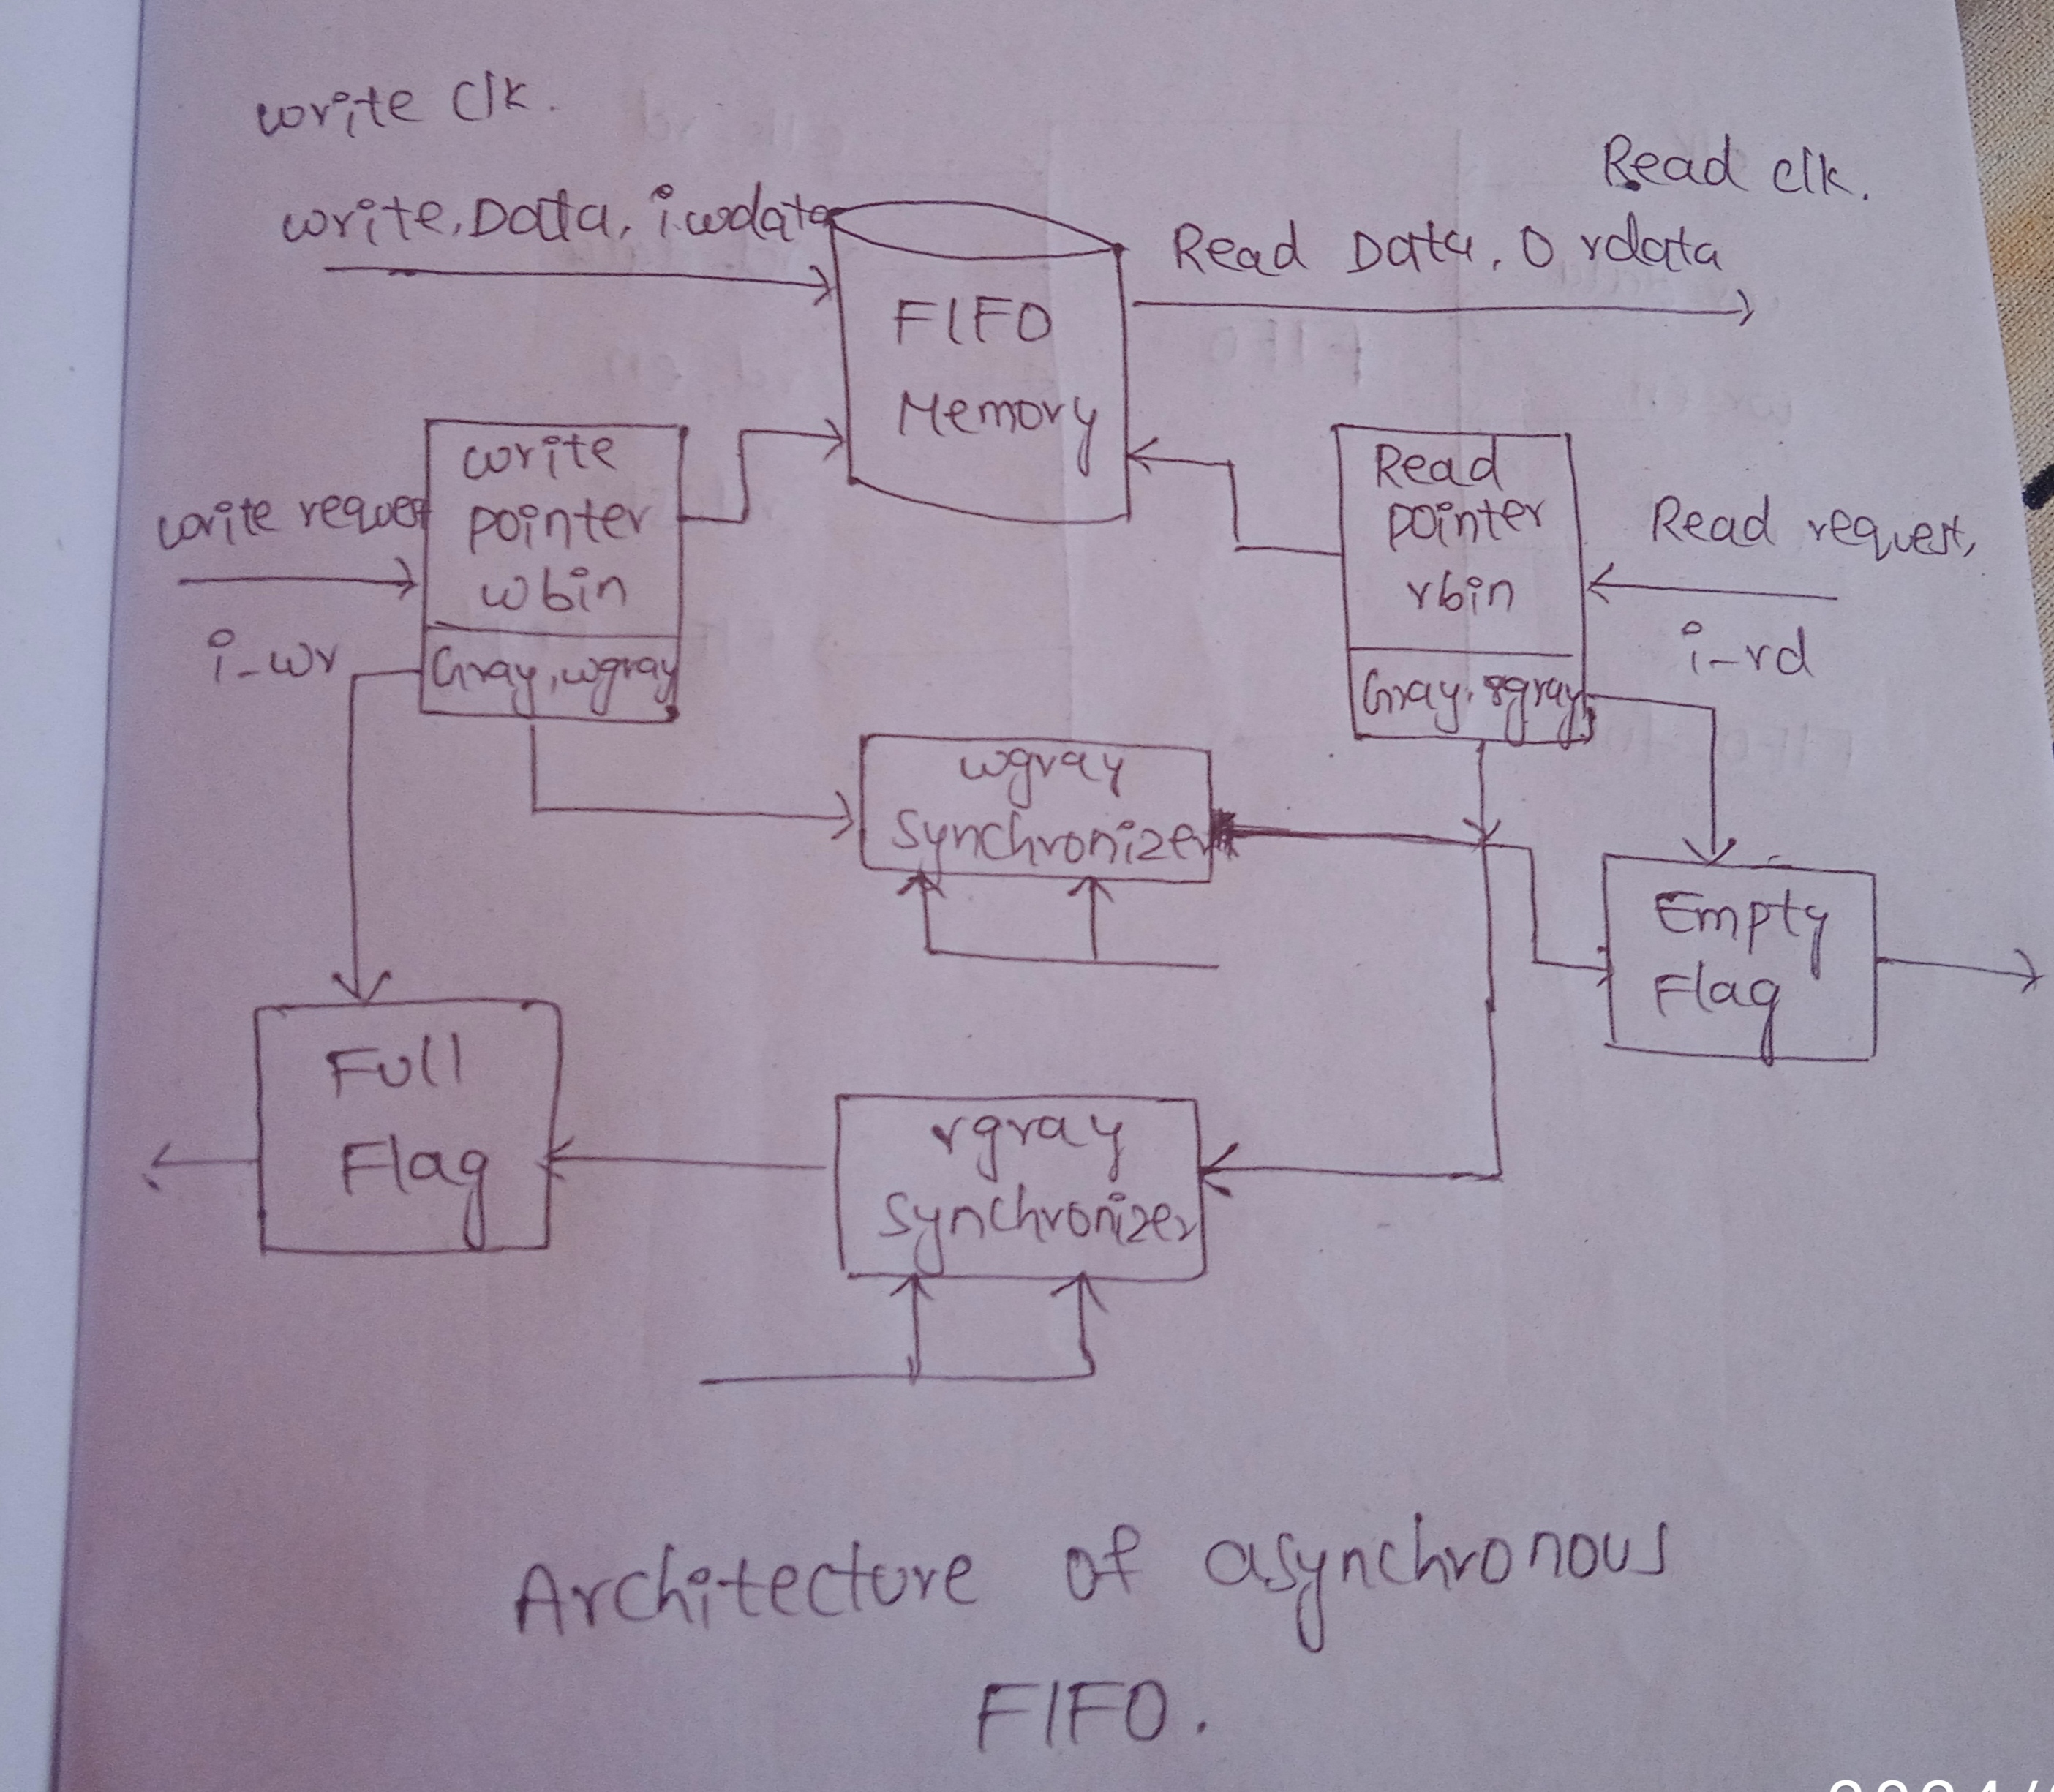 write clk.
Read clk.
write, Data, i.wdata
Read Data, O rdata
FIFO
Memory
write
pointer
wbin
Gray, wgray
write request
i-wr
Read
pointer
rbin
Gray, rgray
Read request,
i-rd
wgray
synchronizer
Empty
Flag
Full
Flag
rgray
synchronizer
Architecture of asynchronous
FIFO.